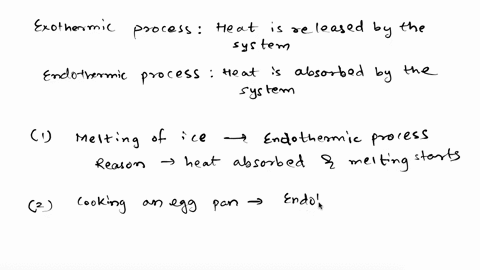 Exothermic process : Heat is released by the
system
Endothermic process : Heat is absorbed by the
system
(1) Melting of ice → Endothermic process
Reason → heat absorbed & melting starts
(2) Cooking an egg pan → Endot